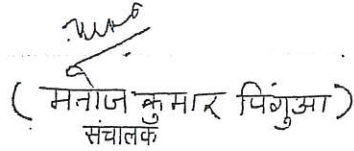 ( मनोज कुमार पिंगुआ )
संचालक